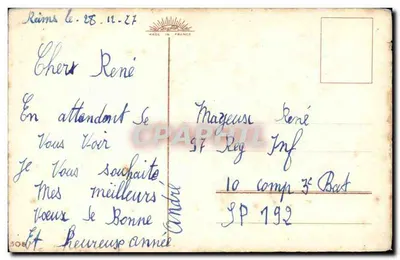 Reims le 28-12-27
MADE IN FRANCE
Chers René
En attendent de
Vous Voir
Je Vous souhaite
Mes meilleurs
Vœux de Bonne
Et heureuse année
André
Mayeux René
97 Reg Inf
10 comp 3e Bat
SP 192
CPARAMA